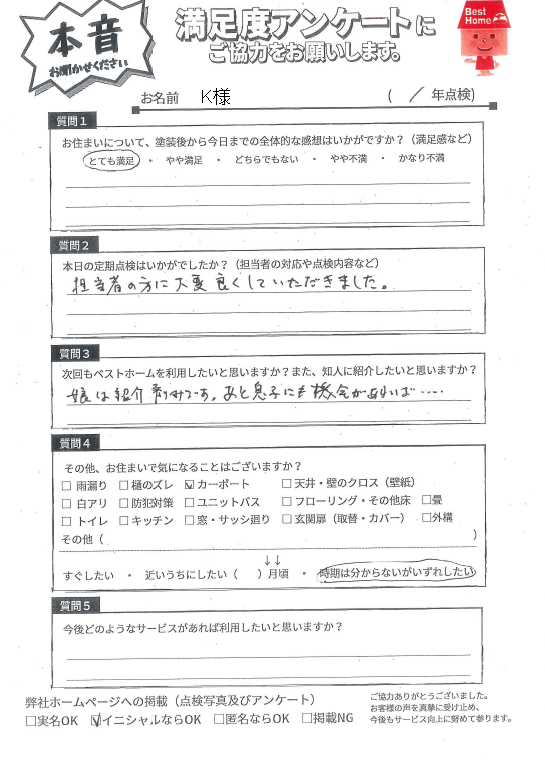 本音
お聞かせください
満足度アンケートに
ご協力をお願いします。
Best Home
お名前 K様 ( / 年点検)
質問1
お住まいについて、塗装後から今日までの全体的な感想はいかがですか？（満足感など）
とても満足 ・ やや満足 ・ どちらでもない ・ やや不満 ・ かなり不満
質問2
本日の定期点検はいかがでしたか？（担当者の対応や点検内容など）
担当者の方に大変良くしていただきました。
質問3
次回もベストホームを利用したいと思いますか？また、知人に紹介したいと思いますか？
娘は紹介 済みです。あと息子にも機会があれば……
質問4
その他、お住まいで気になることはございますか？
□ 雨漏り □ 樋のズレ ☑ カーポート □ 天井・壁のクロス（壁紙）
□ 白アリ □ 防犯対策 □ ユニットバス □ フローリング・その他床 □畳
□ トイレ □ キッチン □ 窓・サッシ廻り □ 玄関扉（取替・カバー） □外構
その他（ ）
↓↓
すぐしたい ・ 近いうちにしたい（ ）月頃 ・ 時期は分からないがいずれしたい
質問5
今後どのようなサービスがあれば利用したいと思いますか？
弊社ホームページへの掲載（点検写真及びアンケート）
□実名OK ☑イニシャルならOK □匿名ならOK □掲載NG
ご協力ありがとうございました。
お客様の声を真摯に受け止め、
今後もサービス向上に努めて参ります。